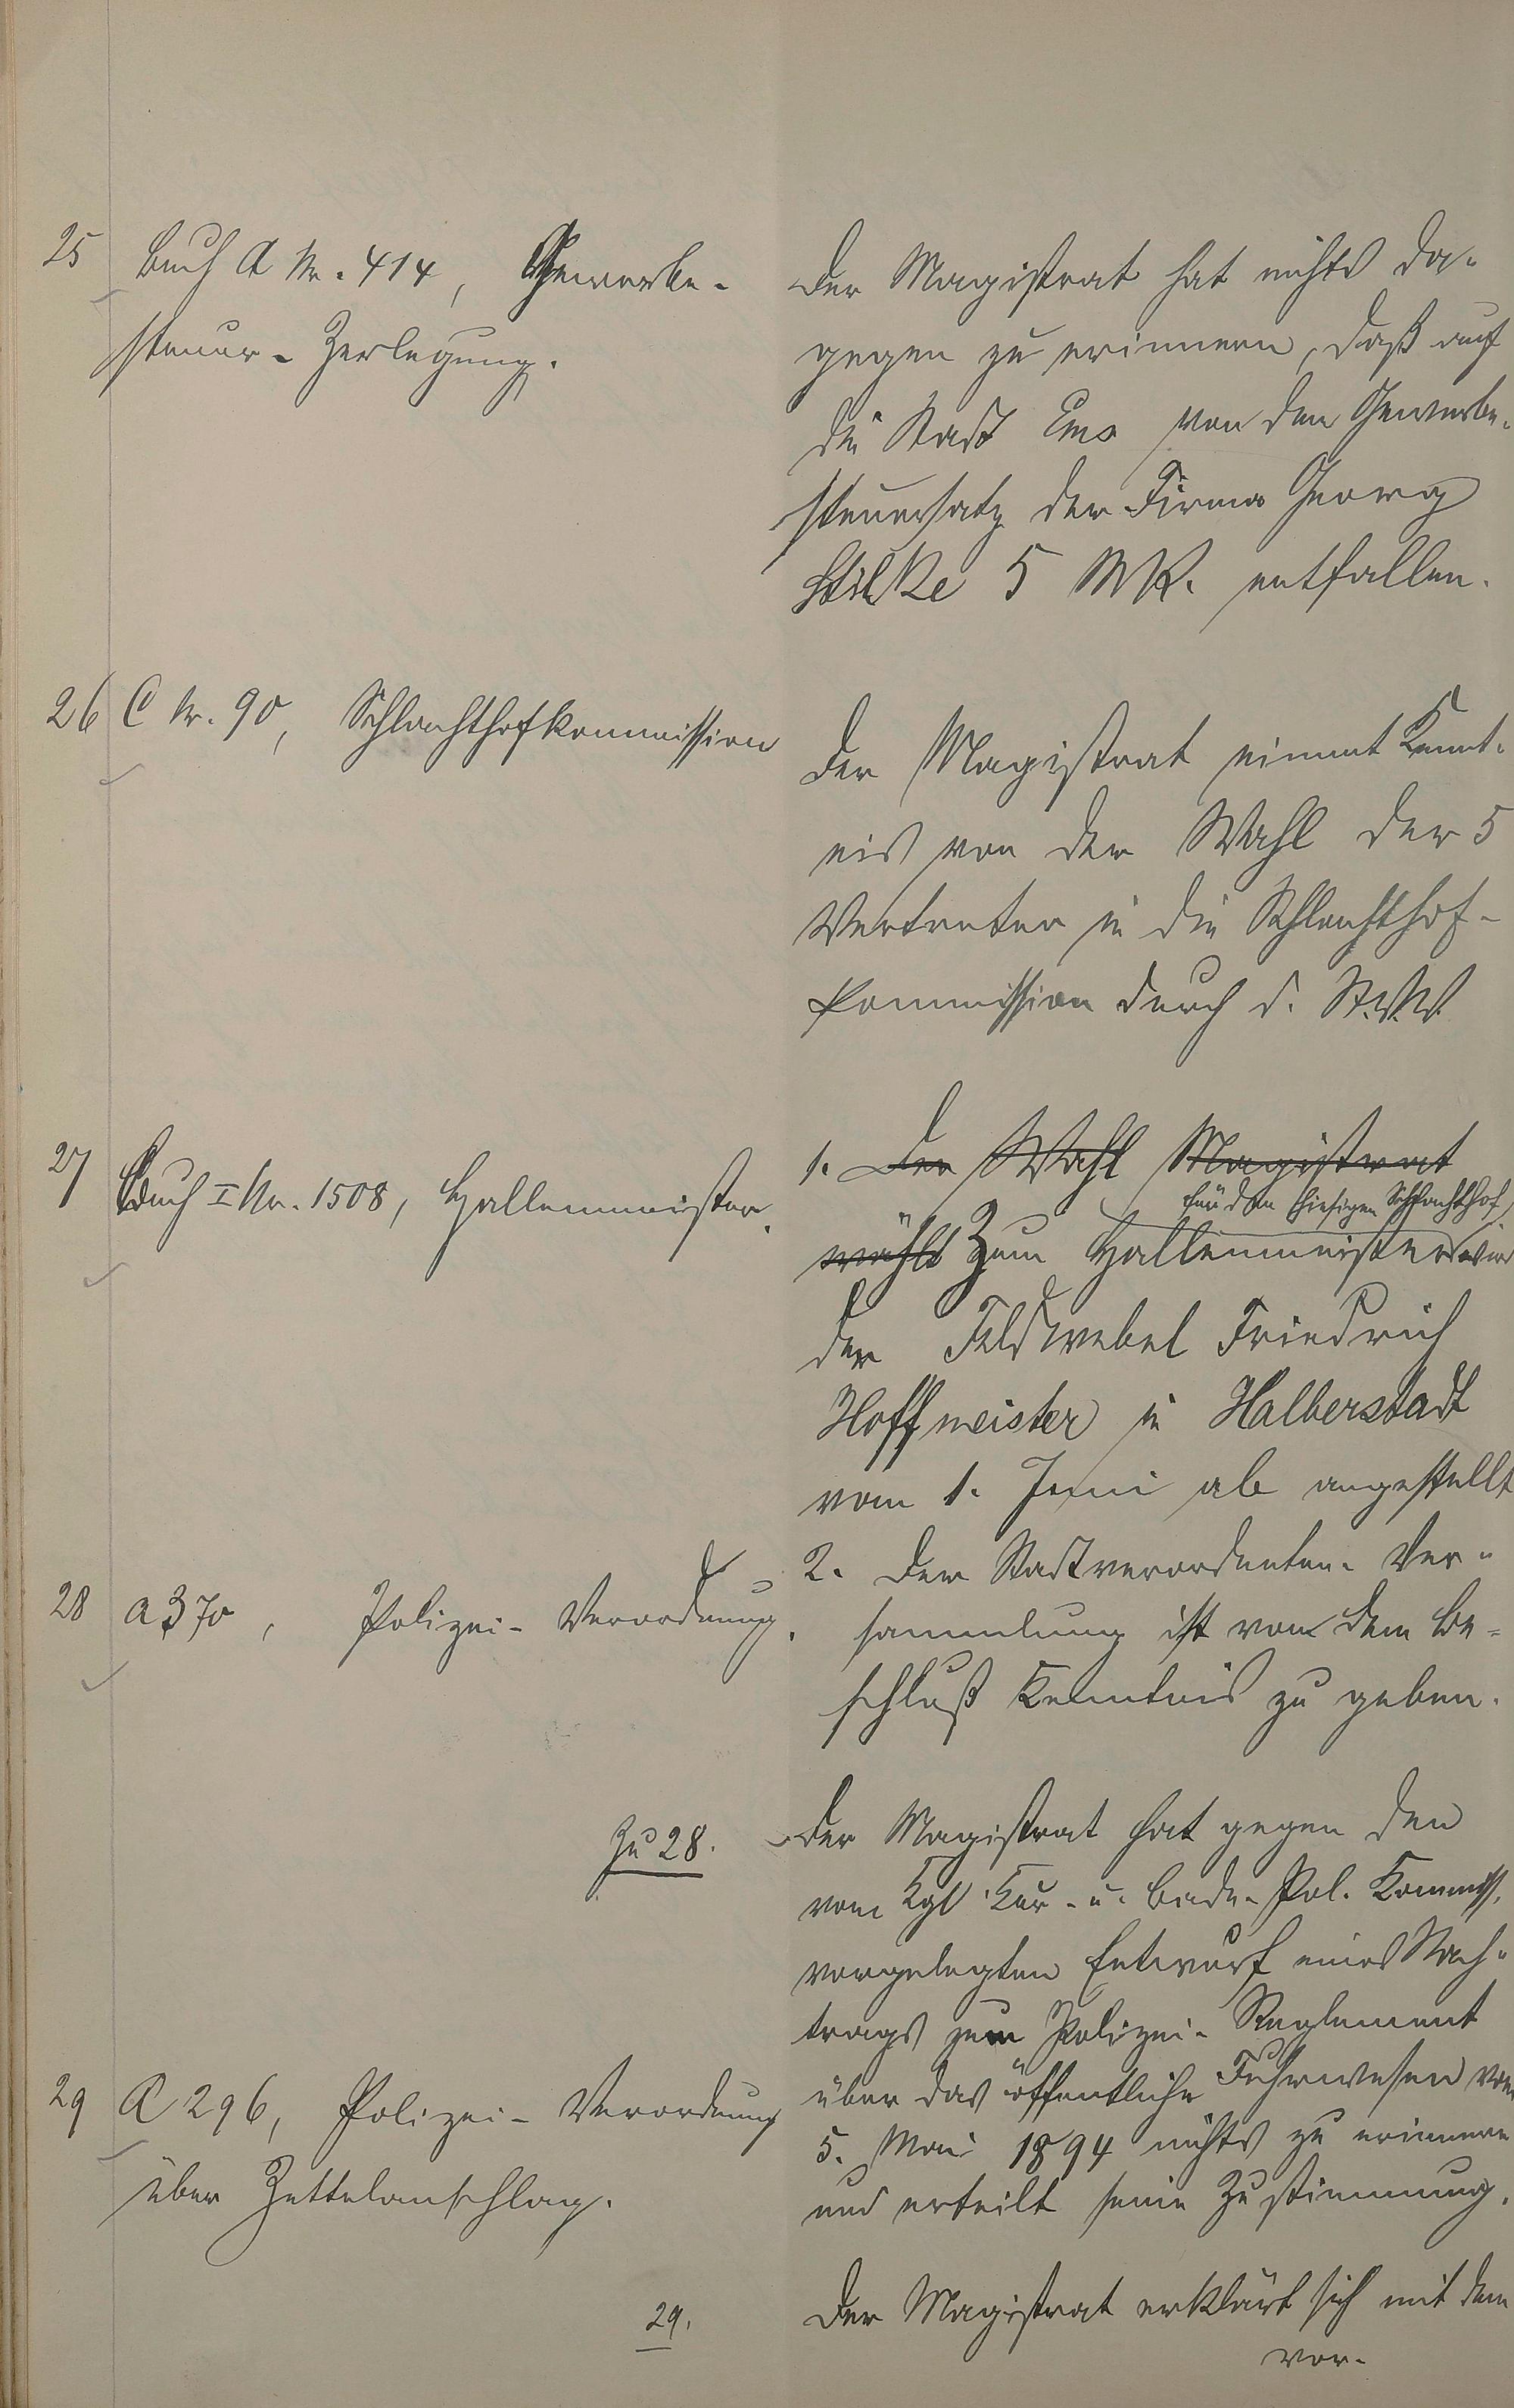 25 Buch A Nr. 414, Gewerbe-
steuer-Zerlegung.
Der Magistrat hat nichts da-
gegen zu erinnern, daß auf
die Stadt Ems von dem Gewerbe-
steuersatz der Firma Georg
Stilke 5 Mk. entfallen.
26 C Nr. 90, Schlachthofkommission
Der Magistrat nimmt Kennt-
nis von der Wahl der 5
Vertreter in die Schlachthof-
kommission durch d. St.V.V.
27 Buch I Nr. 1508, Hallenmeister.
1. Der Wahl Magistrat
für den hiesigen Schlachthof
wählt Zum Hallenmeister wird
der Feldwebel Friedrich
Hoffmeister in Halberstadt
vom 1. Juni ab angestellt
2. Der Stadtverordneten-Ver-
sammlung ist von dem Be-
schluß Kenntnis zu geben.
28 A 370, Polizei-Verordnung.
Zu 28.
Der Magistrat hat gegen den
vom Kgl. Kur- u. Bade-Pol. Kommiss.
vorgelegten Entwurf eines Nach-
trags zum Polizei-Reglement
über das öffentliche Fuhrwesen vom
5. Mai 1894 nichts zu erinnern
und erteilt seine Zustimmung.
29 A 296, Polizei-Verordnung
über Zettelanschlag.
29.
Der Magistrat erklärt sich mit dem
vor-